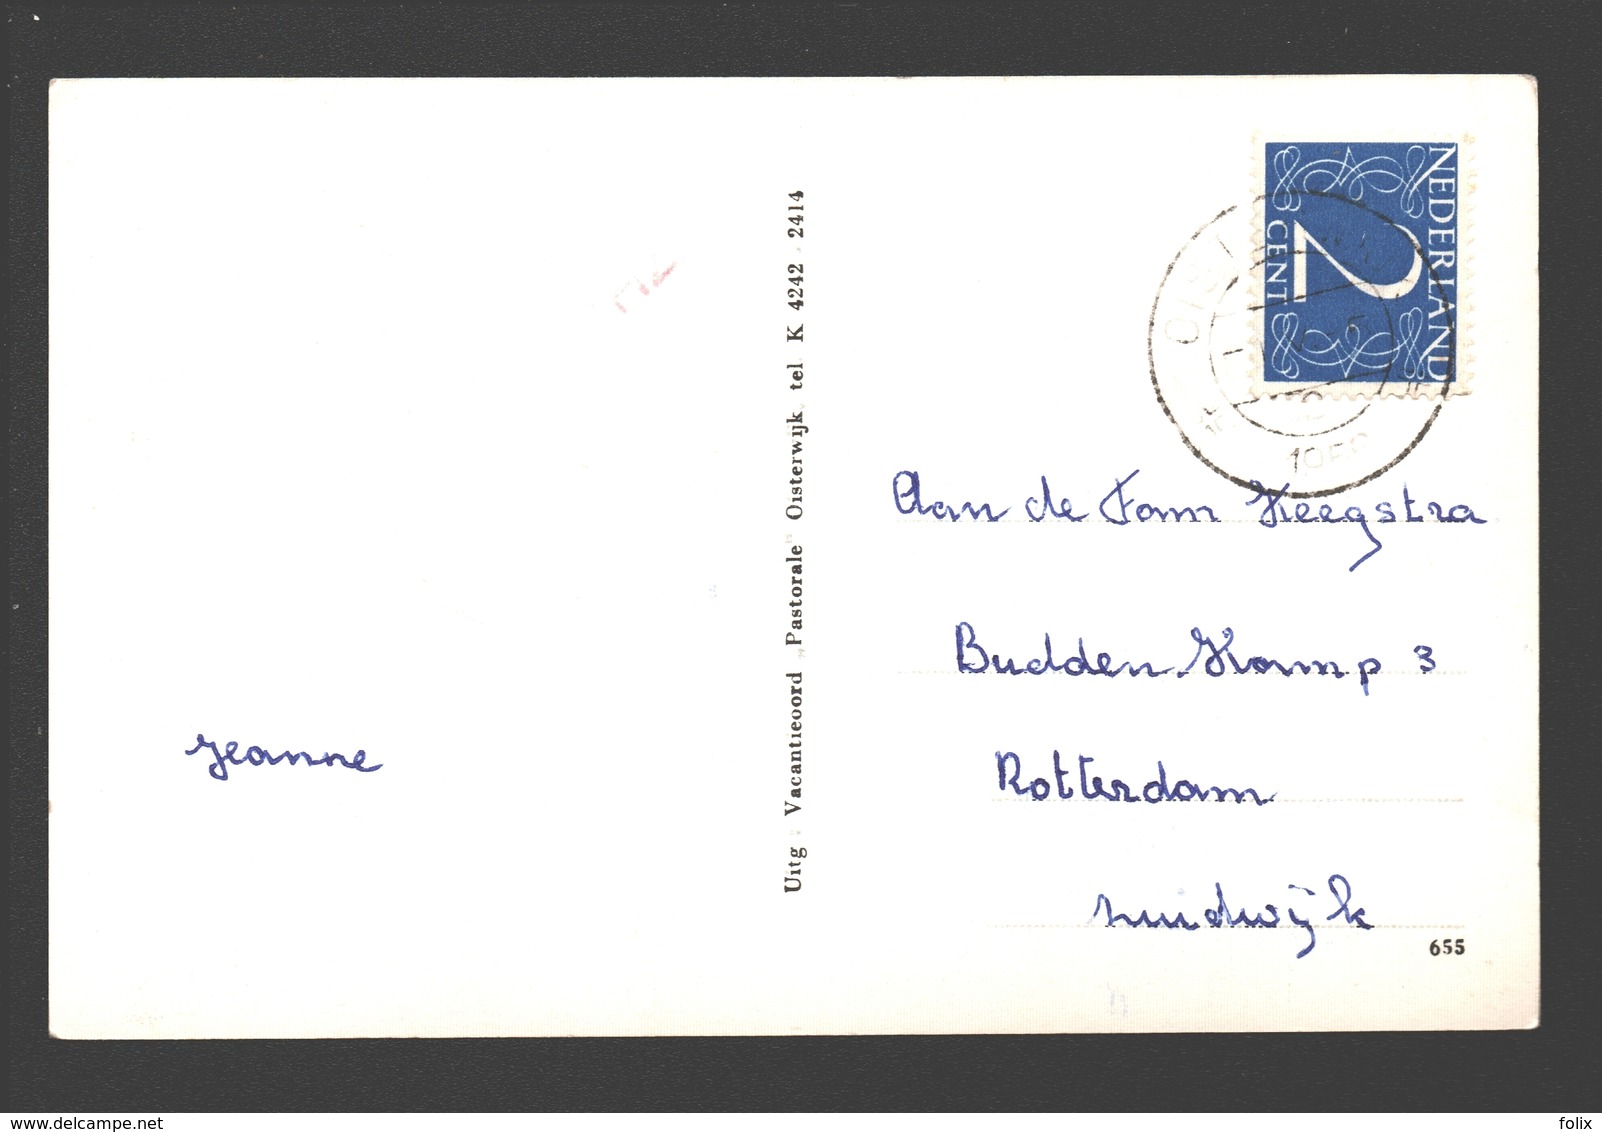 NEDERLAND
2
CENT
Uitg. Vacantieoord „Pastorale" Oisterwijk tel K 4242 - 2414
Aan de Fam Heegstra
Budden Komp 3
Rotterdam
zuidwijk
Jeanne
655
www.delcampe.net
folix